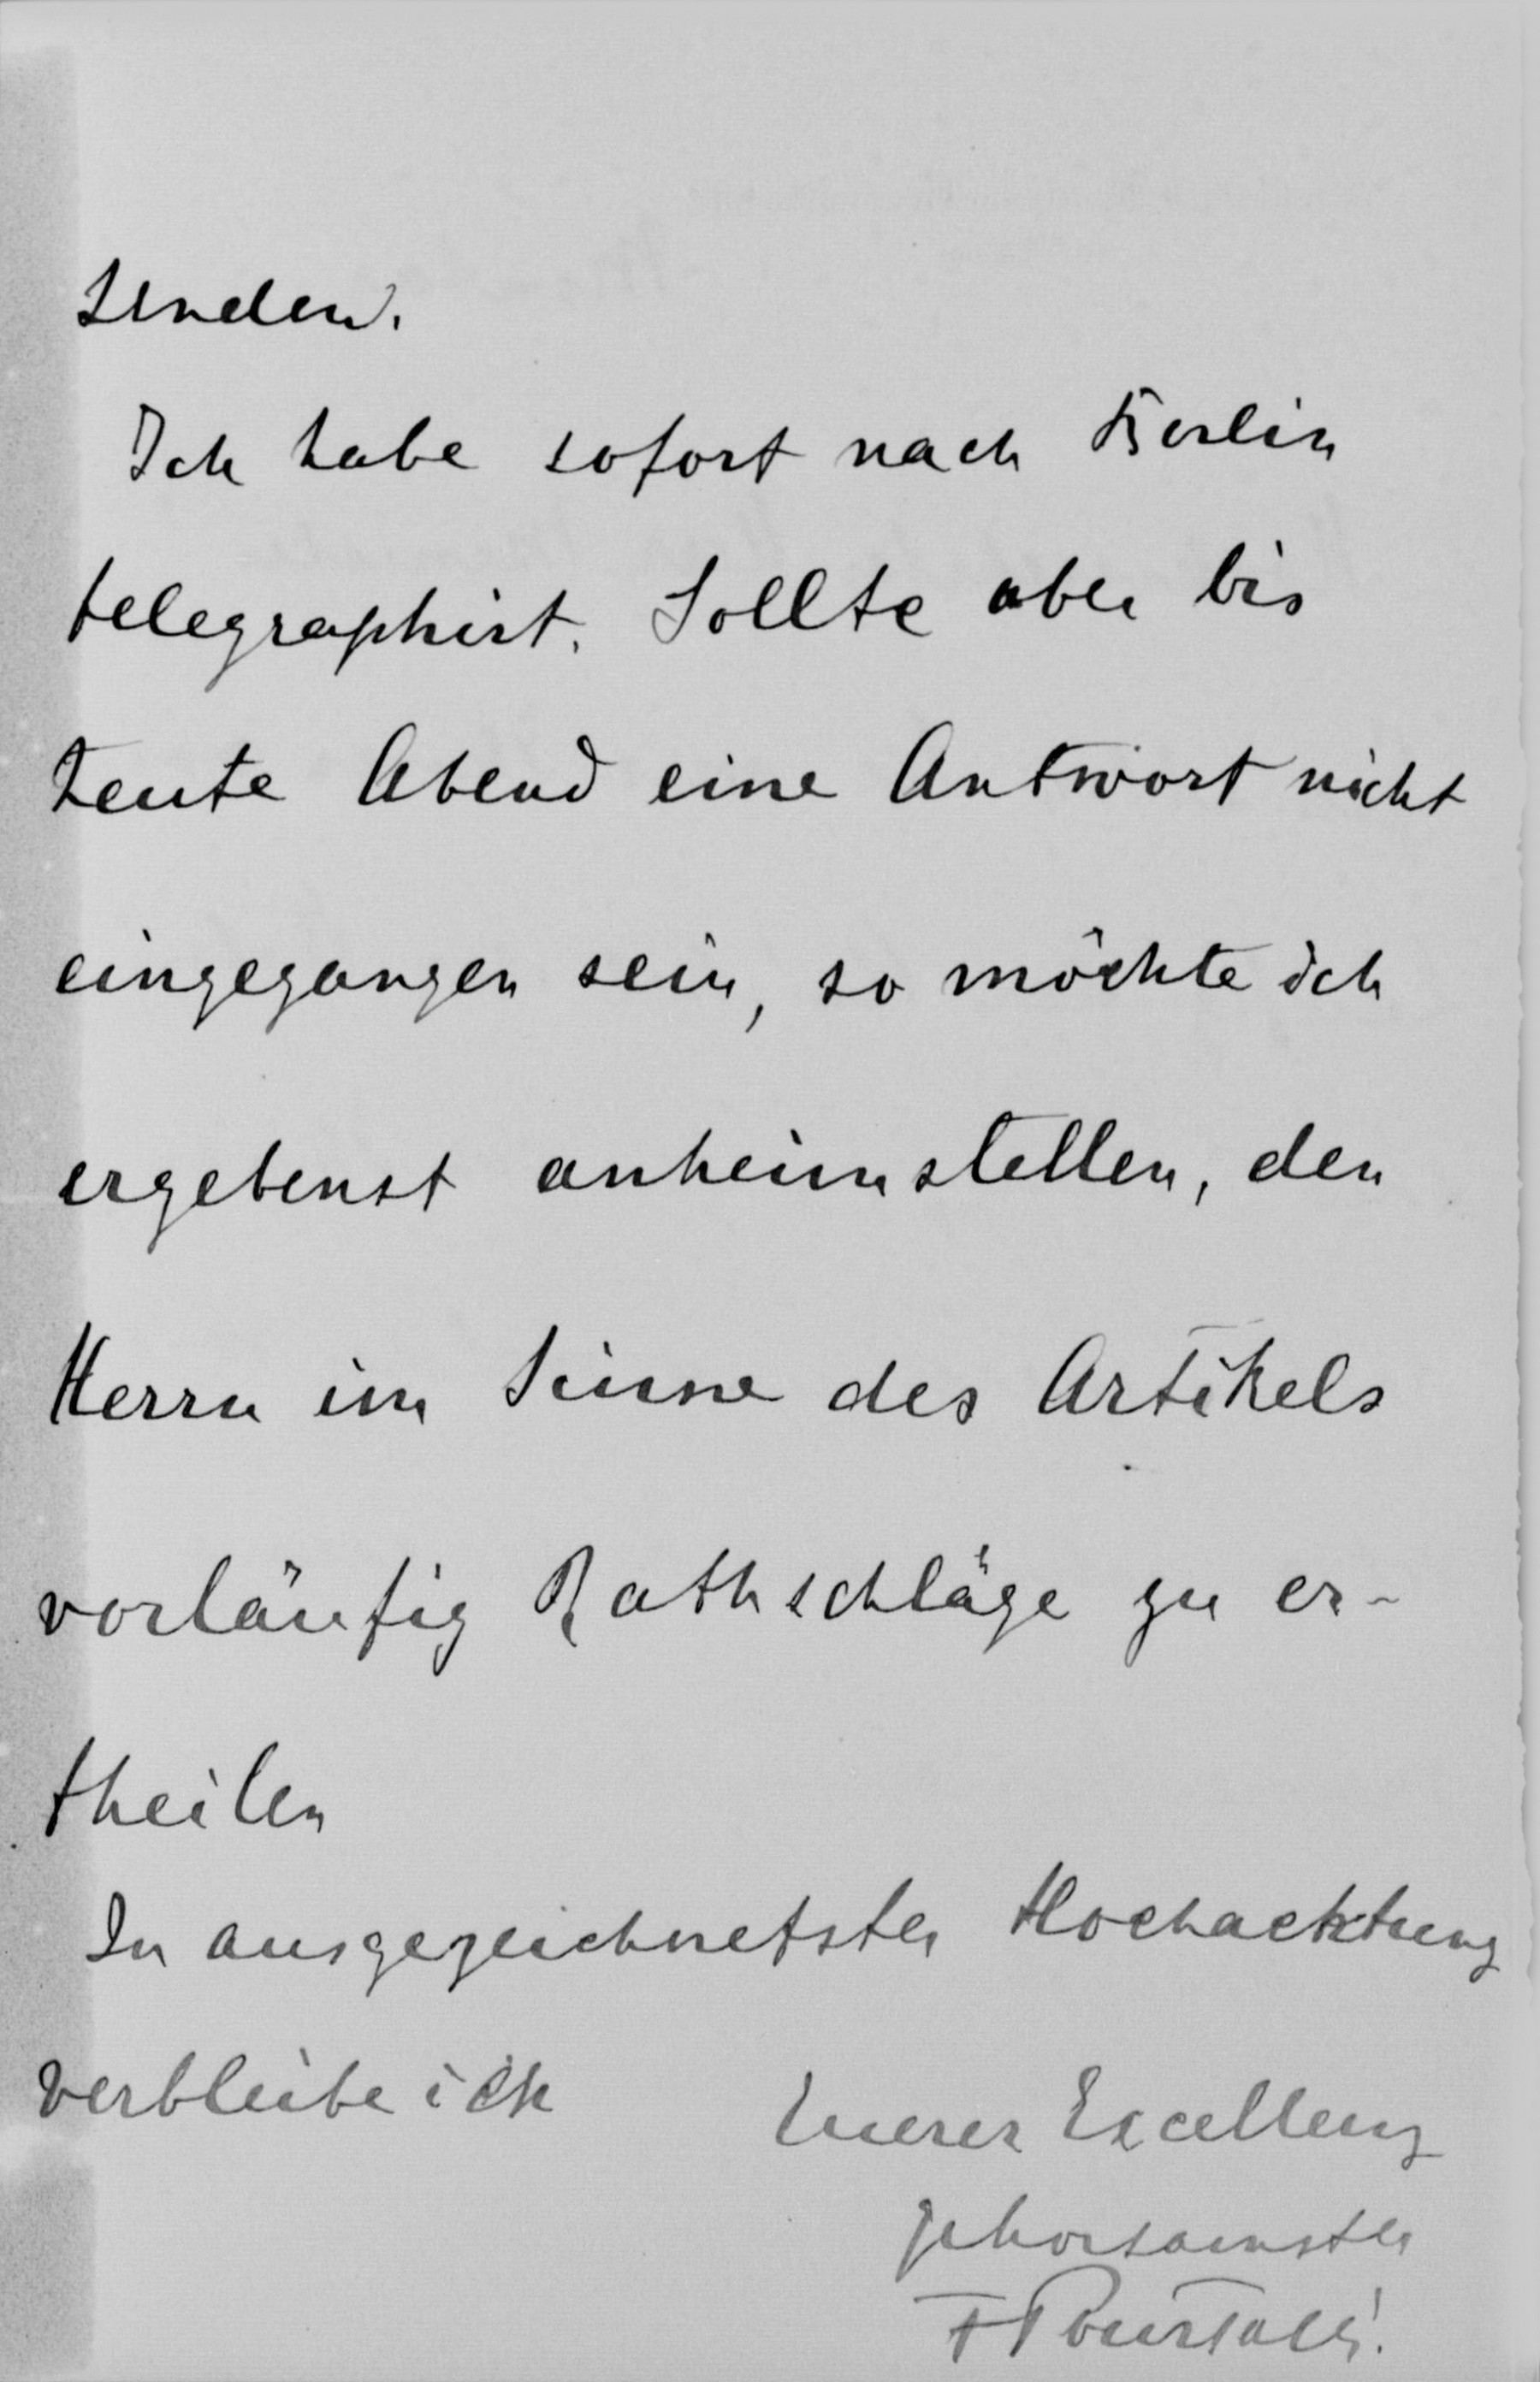 senden.
Ich habe sofort nach Berlin
telegraphirt. Sollte aber bis
heute Abend eine Antwort nicht
eingegangen sein, so möchte ich
ergebenst anheimstellen, den
Herrn im Sinne des Artikels
vorläufig Rathschläge zu er-
theilen
In ausgezeichnetster Hochachtung
verbleibe ich
Euerer Excellenz
gehorsamster
F Pourtalès.